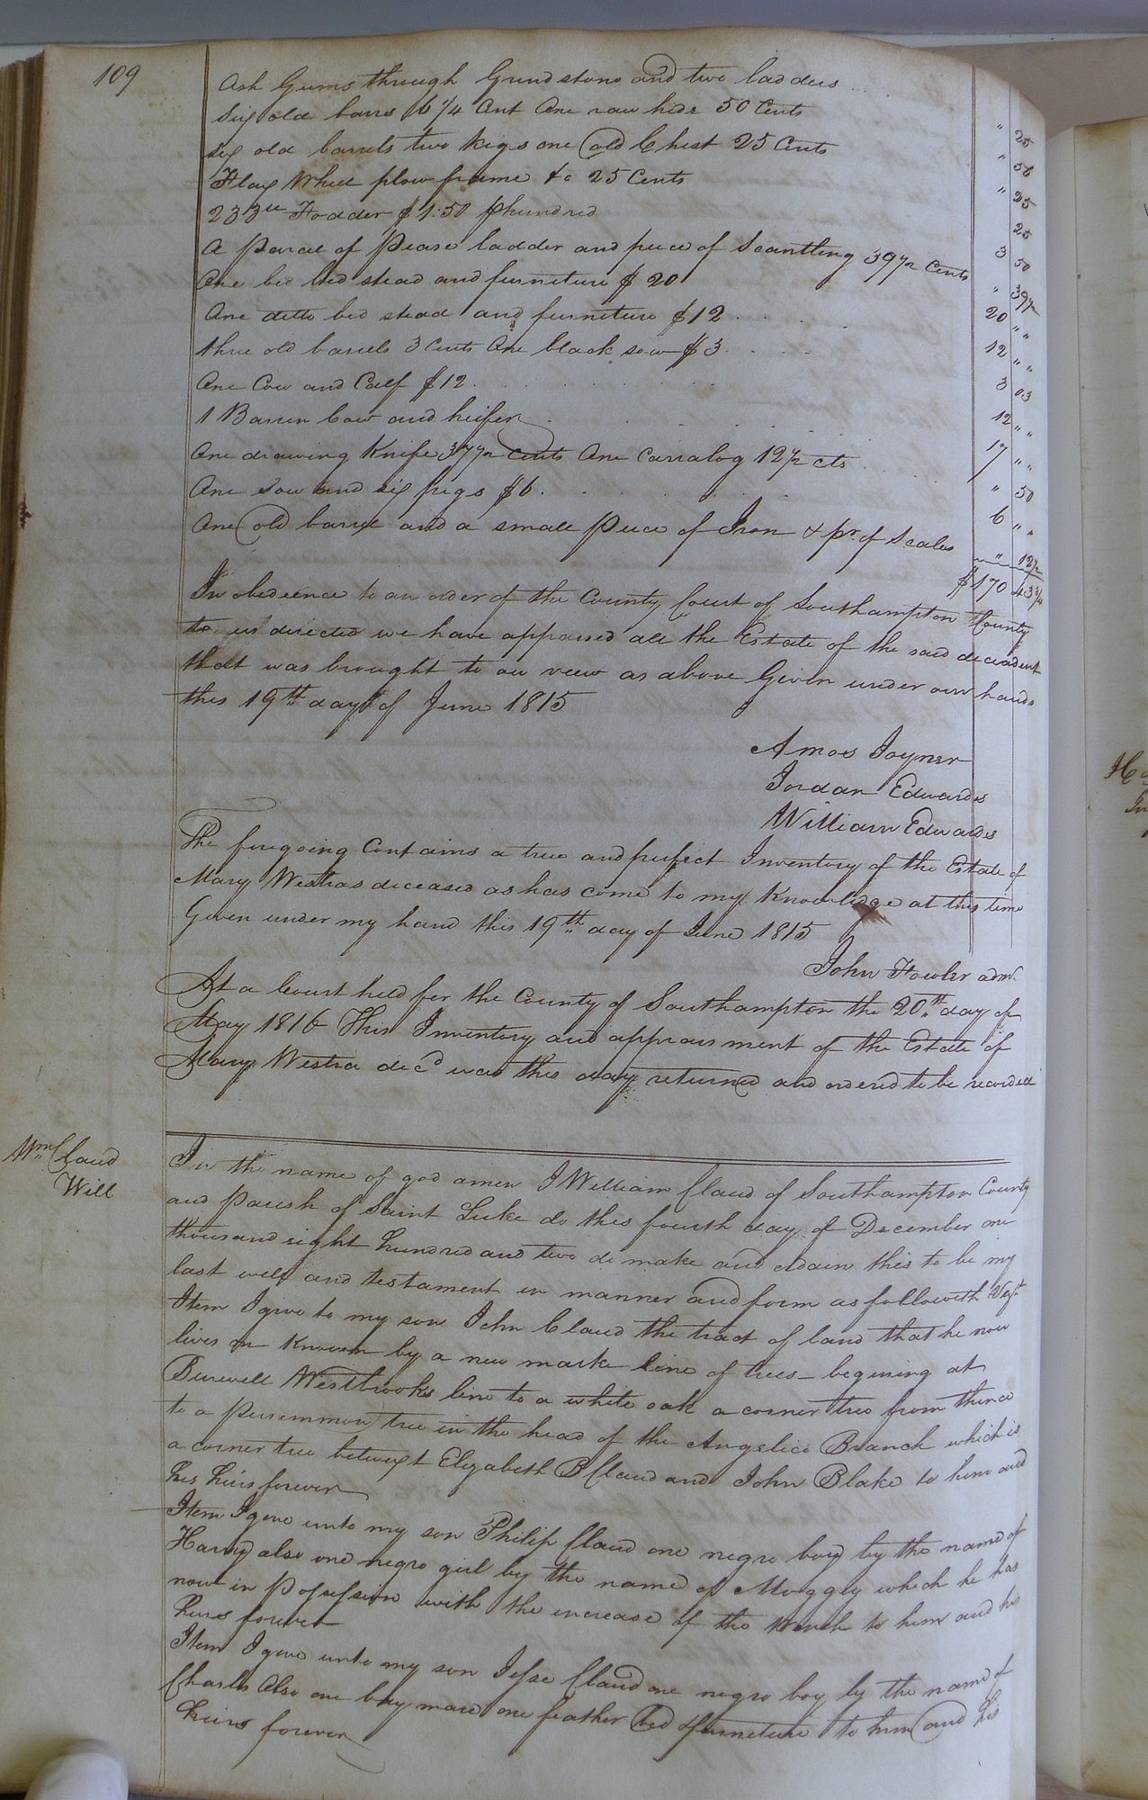 109
Ash Gums through Grindstone and two ladders
Six old barrs 6 1/4 Cent One raw hide 50 Cents " 25
Six old barrels two kegs one old Chest 25 Cents " 56
Flax Wheel plow frame &c 25 Cents " 25
233 lb Fodder $1.50 p hundred 25
A Parcel of Pease ladder and piece of Scantling 39 1/2 Cents 3 50
One bed bed stead and furniture $ 20 " 39 1/2
One ditto bed stead and furniture $12 20 " "
three old barrels 3 Cents One black sow $3 12 " "
One Cow and Calf $12 3 03
1 Barren Cow and heifer 12 " "
One drawing Knife 37 1/2 Cents One Carralog 12 1/2 cts 17 " "
One Sow and six pigs $6 " 50
One old barrel and a small Piece of Iron & pr of Scales 6 " "
" 12 1/2
$170 43 3/4
In obedience to an order of the County Court of Southampton County
to us directed we have appraised all the Estate of the said decedent
that was brought to our view as above Given under our hands
this 19th day of June 1815
Amos Joyner
Jordan Edwards
William Edwards
The foregoing Contains a true and perfect Inventory of the Estate of
Mary Westras deceased as has come to my Knowledge at this time
Given under my hand this 19th day of June 1815
John Fowler admr
At a Court held for the County of Southampton the 20th day of
May 1816 This Inventory and appraisment of the Estate of
Mary Westra decd was this day returned and ordered to be recorded
Wm Claud
Will
In the name of god amen I William Claud of Southampton County
and Parish of Saint Luke do this fourth day of December one
thousand eight hundred and two do make and odain this to be my
last will and testament in manner and form as followeth Vizt
Item I give to my son John Claud the tract of land that he now
lives on Known by a new mark line of trees begining at
Burwell Westbrooks line to a white oak a corner tree from thence
to a persimmon tree in the head of the Angelico Branch which is
a corner tree betwixt Elizabeth B Claud and John Blake to him and
his heirs forever
Item I give unto my son Philip Claud one negro boy by the name of
Harry also one negro girl by the name of Muggy which he has
now in Possession with the increase of the Wench to him and his
heirs forever
Item I give unto my son Jesse Claud one negro boy by the name of
Charles Also one bay mare one feather bed & furniture to him and his
heirs forever